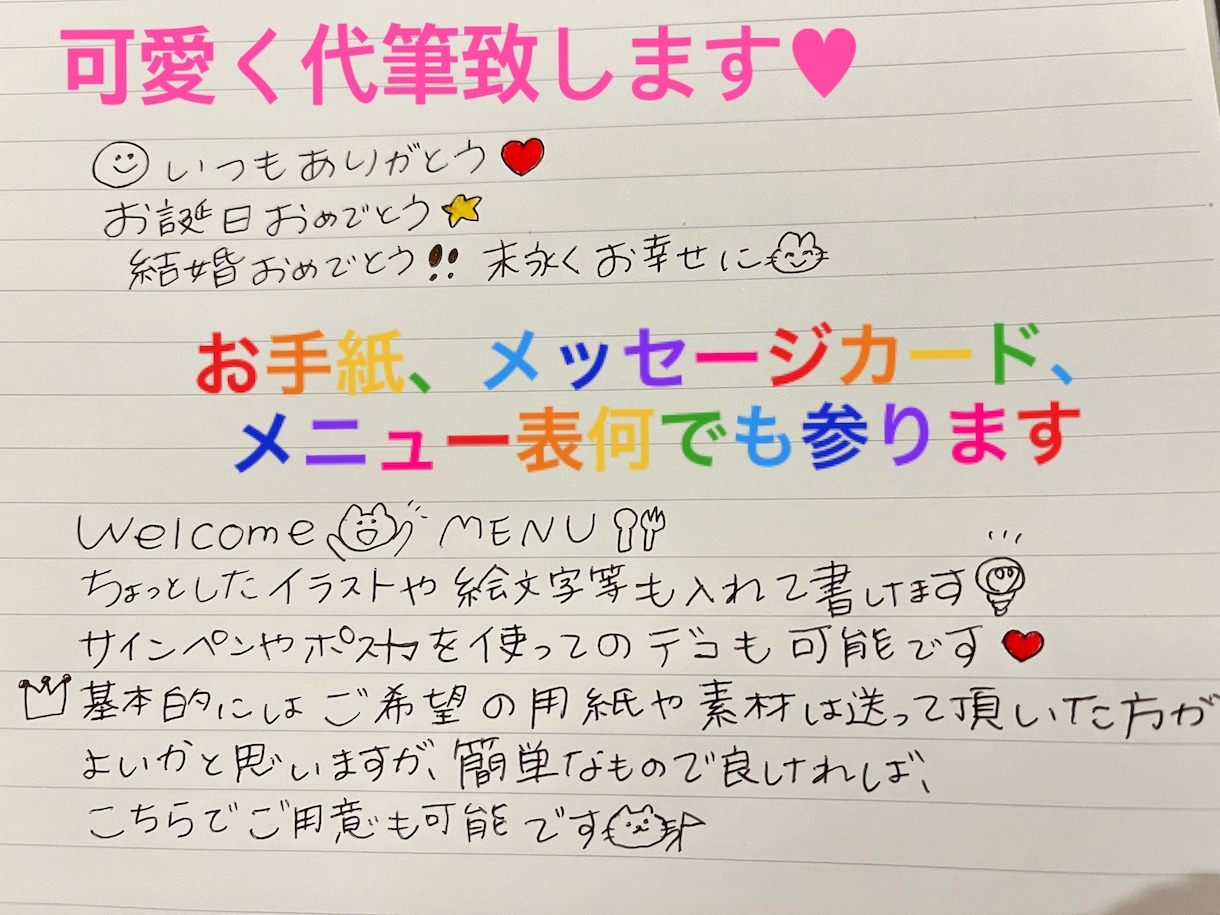 可愛く代筆致します♥
いつもありがとう
お誕生日おめでとう
結婚おめでとう!! 末永くお幸せに
お手紙、メッセージカード、
メニュー表何でも参ります
Welcome MENU
ちょっとしたイラストや絵文字等も入れて書けます
サインペンやポスカを使ってのデコも可能です
基本的にはご希望の用紙や素材は送って頂いた方が
よいかと思いますが、簡単なもので良ければ、
こちらでご用意も可能です